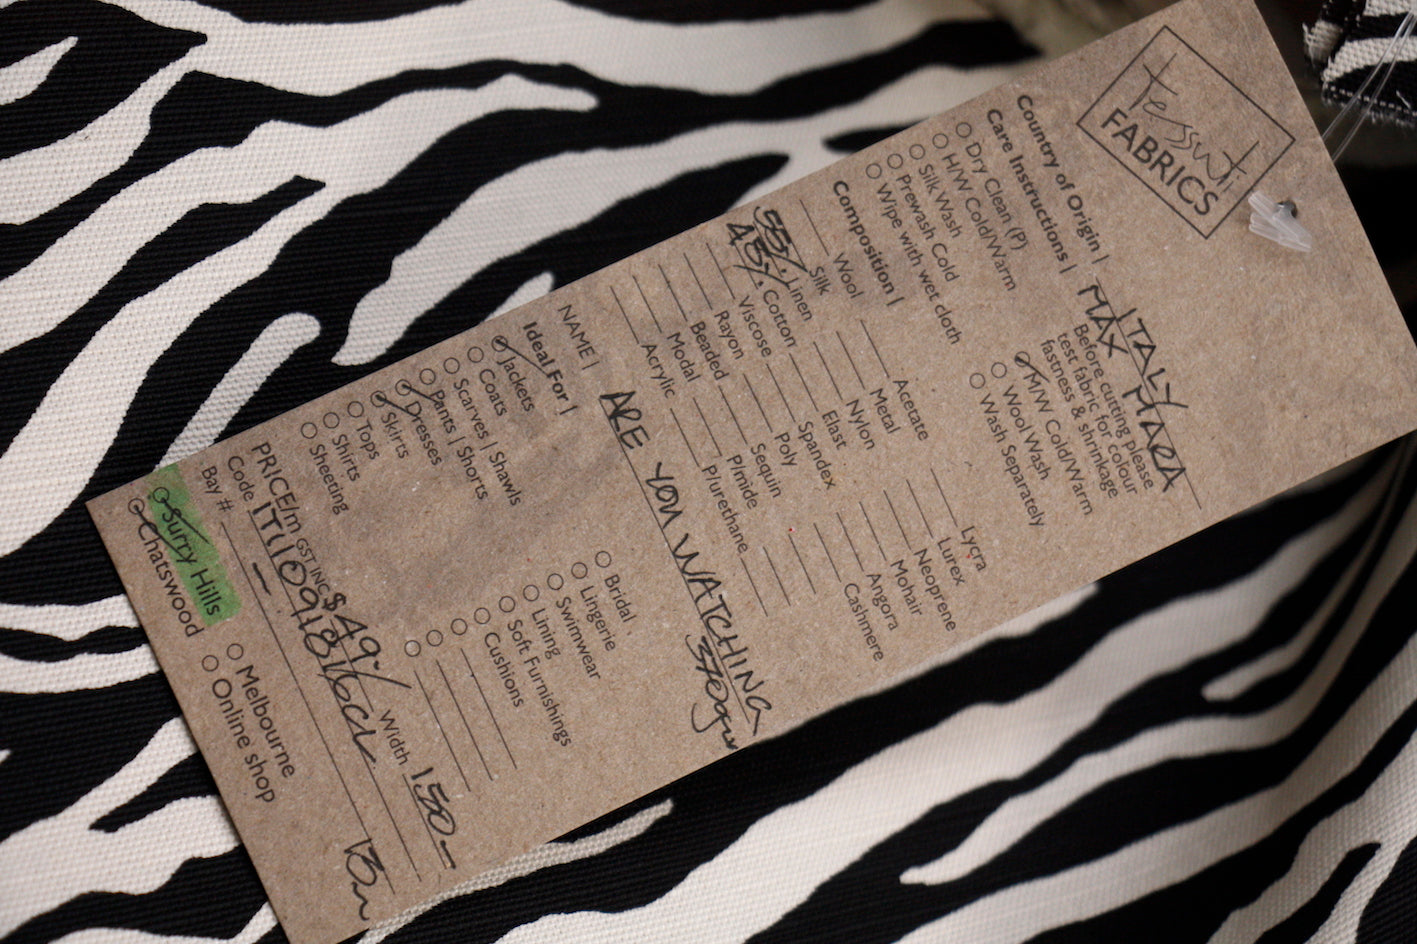 Tessuti
FABRICS
Country of Origin | ITALY
Care Instructions | MAX MARA
Dry Clean (P)
H/W Cold/Warm
Silk Wash
Prewash Cold
Wipe with wet cloth
Before cutting please
test fabric for colour
fastness & shrinkage
M/W Cold/Warm
Wool Wash
Wash Separately
Composition |
Wool
Silk
55% Linen
45% Cotton
Viscose
Rayon
Beaded
Modal
Acrylic
Acetate
Metal
Nylon
Elast
Spandex
Poly
Sequin
P/mide
P/urethane
Lycra
Lurex
Neoprene
Mohair
Angora
Cashmere
NAME | ARE YOU WATCHING
370gm
Ideal For |
Jackets
Coats
Scarves | Shawls
Pants | Shorts
Dresses
Skirts
Tops
Shirts
Sheeting
Bridal
Lingerie
Swimwear
Lining
Soft Furnishings
Cushions
PRICE/m GST INC $49 Width 150
Code
Bay #
13m
Surry Hills
Chatswood
Melbourne
Online shop